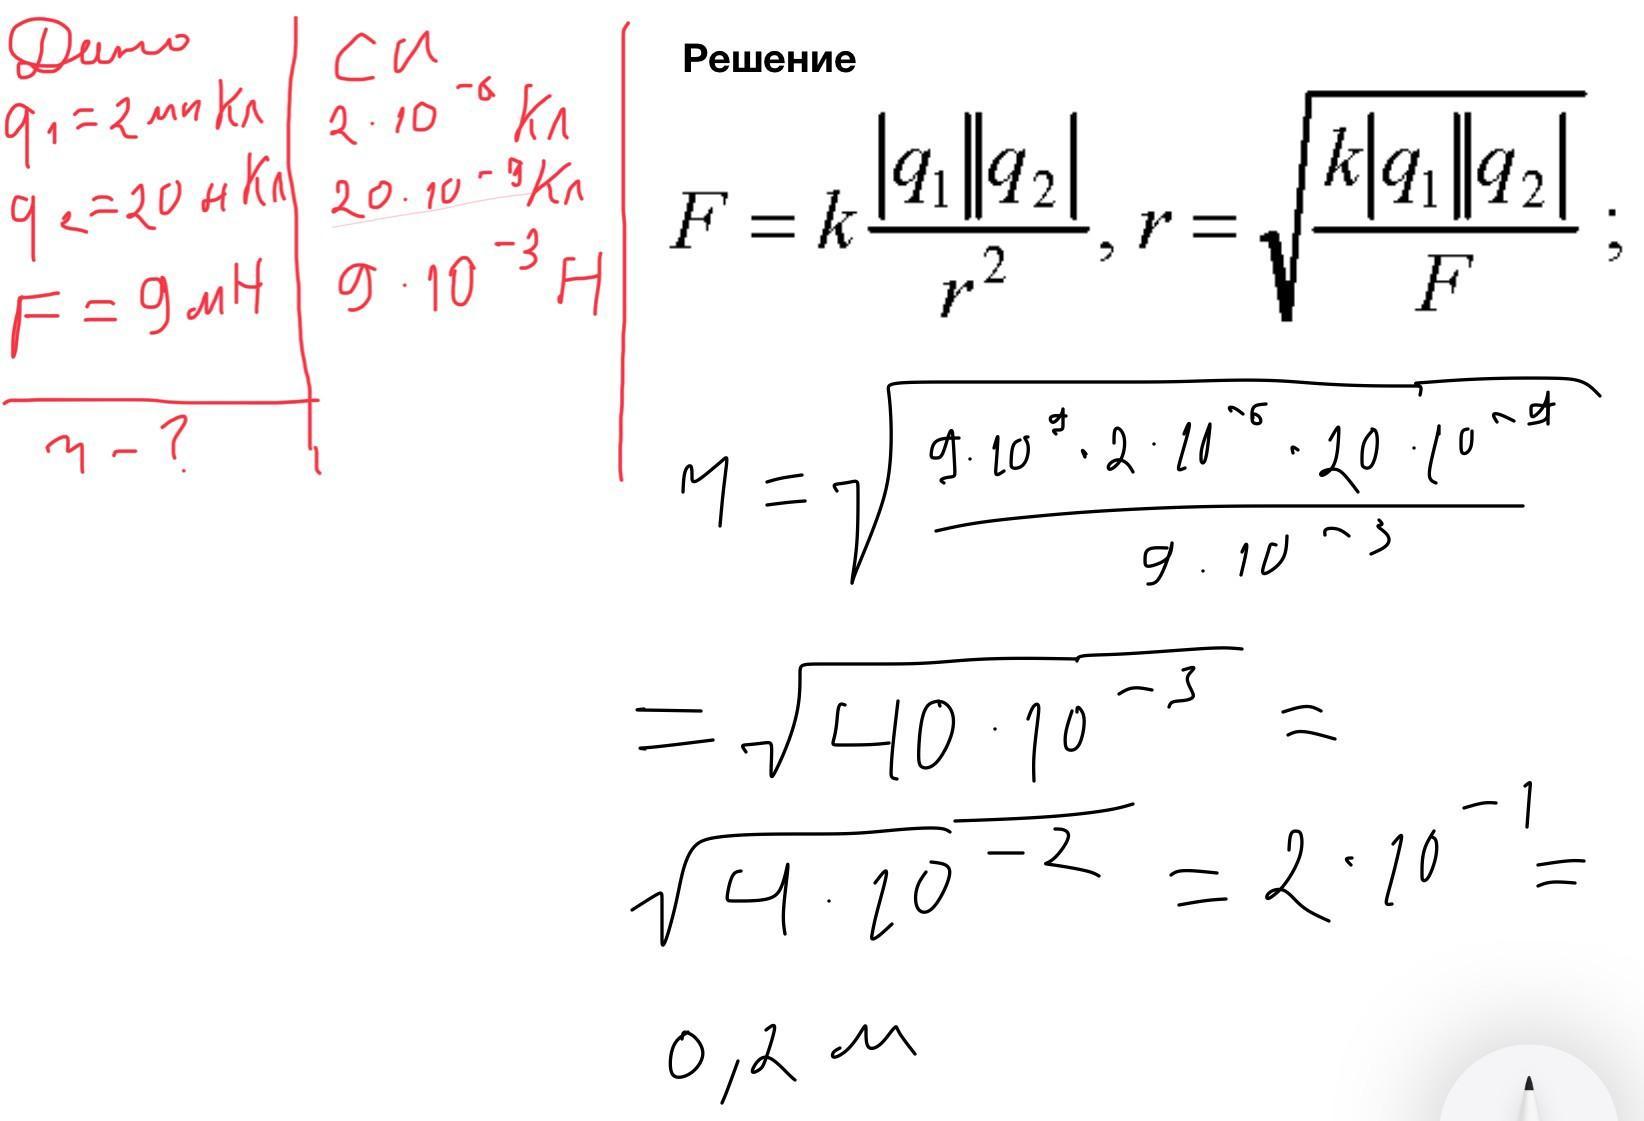 Дано
q₁ = 2 мкКл
q₂ = 20 нКл
F = 9 мН
r - ?
СИ
2 · 10⁻⁶ Кл
20 · 10⁻⁹ Кл
9 · 10⁻³ Н
Решение
F = k |q₁||q₂| / r², r = √(k|q₁||q₂| / F);
r = √(9 · 10⁹ · 2 · 10⁻⁶ · 20 · 10⁻⁹ / 9 · 10⁻³)
= √(40 · 10⁻³) =
√(4 · 10⁻²) = 2 · 10⁻¹ =
0,2 м